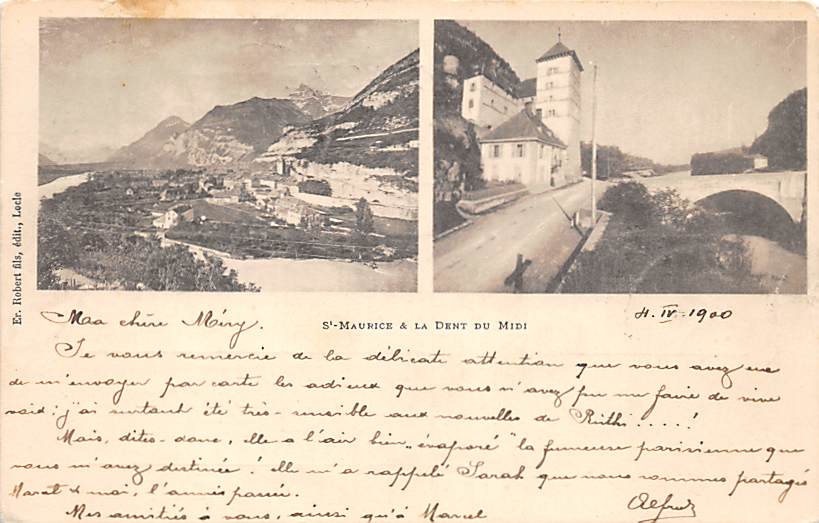 Er. Robert fils, édit., Locle
St-Maurice & la Dent du Midi
4. IV. 1900
Ma chère Méry.
Je vous remercie de la délicate attention que vous avez eue
de m'envoyer par carte les adieux que vous n'avez pu me faire de vive
voix; j'ai surtout été très-sensible aux nouvelles de Ruth.....!
Mais, dites-donc, elle a l'air bien "évaporé" la fumeuse parisienne que
vous m'avez destinée! elle m'a rappelé Sarah que nous sommes partagés
Marcel & moi, l'année passée.
Mes amitiés à vous, ainsi qu'à Marcel
Alfred